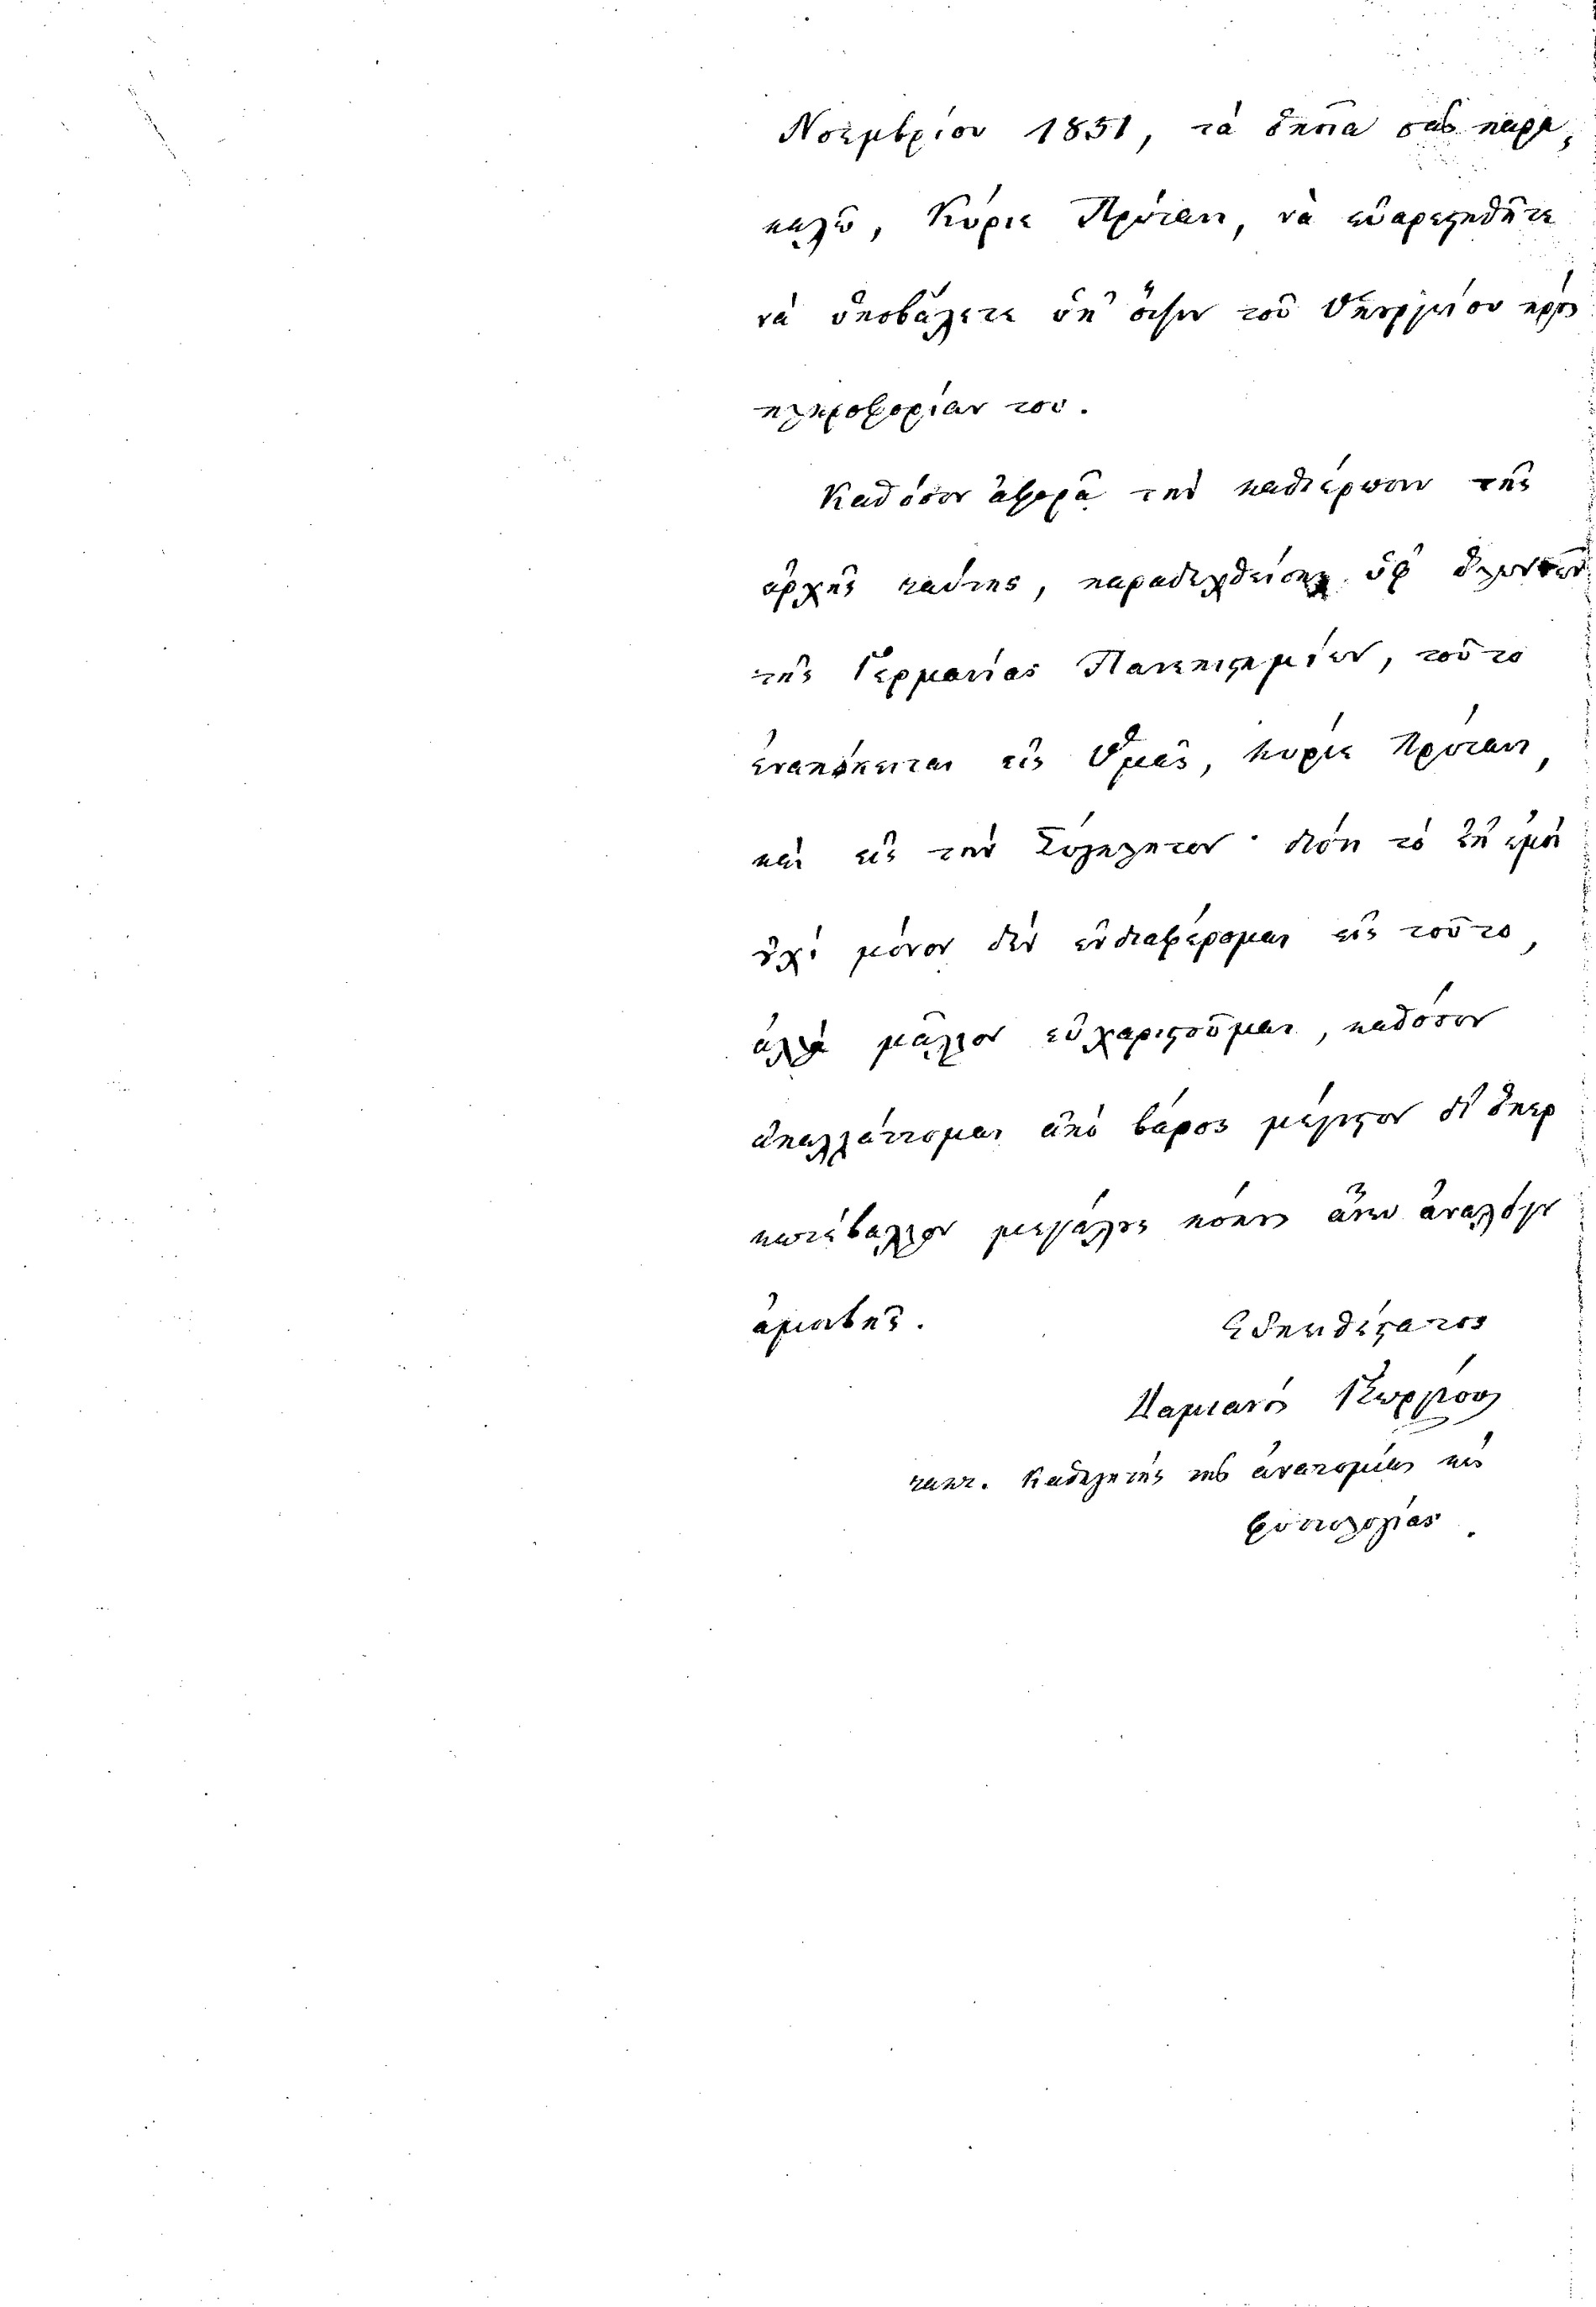 Νοεμβρίου 1851, τὰ ὁποῖα σᾶς παρα,
καλῶ, Κύριε Πρύτανι, νὰ εὐαρεστηθῆτε
νὰ ὑποβάλετε ὑπ' ὄψιν τοῦ Ὑπουργείου πρὸς
πληροφορίαν του.
Καθόσον ἀφορᾷ τὴν καθιέρωσιν τῆς
ἀρχῆς ταύτης, παραδεχθείσης ὑφ' ὅλων τῶν
τῆς Γερμανίας Πανεπιστημίων, τοῦτο
ἐναπόκειται εἰς Ὑμᾶς, Κύριε Πρύτανι,
καὶ εἰς τὴν Σύγκλητον· διότι τὸ ἐπ' ἐμοὶ
ὄχι μόνον δὲν ἐνδιαφέρομαι εἰς τοῦτο,
ἀλλὰ μᾶλλον εὐχαριστοῦμαι, καθόσον
ἀπαλλάττομαι ἀπὸ βάρος μέγιστον δι' ὅπερ
κατέβαλλον μεγάλους κόπους ἄνευ ἀναλόγου
ἀμοιβῆς.
Εὐπειθέστατος
Δαμιανὸς Γεωργίου
τακτ. Καθηγητὴς τῆς ἀνατομίας καὶ
φυσιολογίας.